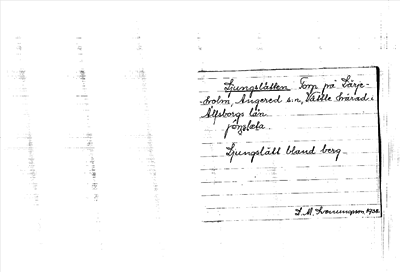 Ljungslätten Torp på Lärje-
holm, Angered s:n, Vättle härad i
Älfsborgs län.
Ljungslätt bland berg
1932